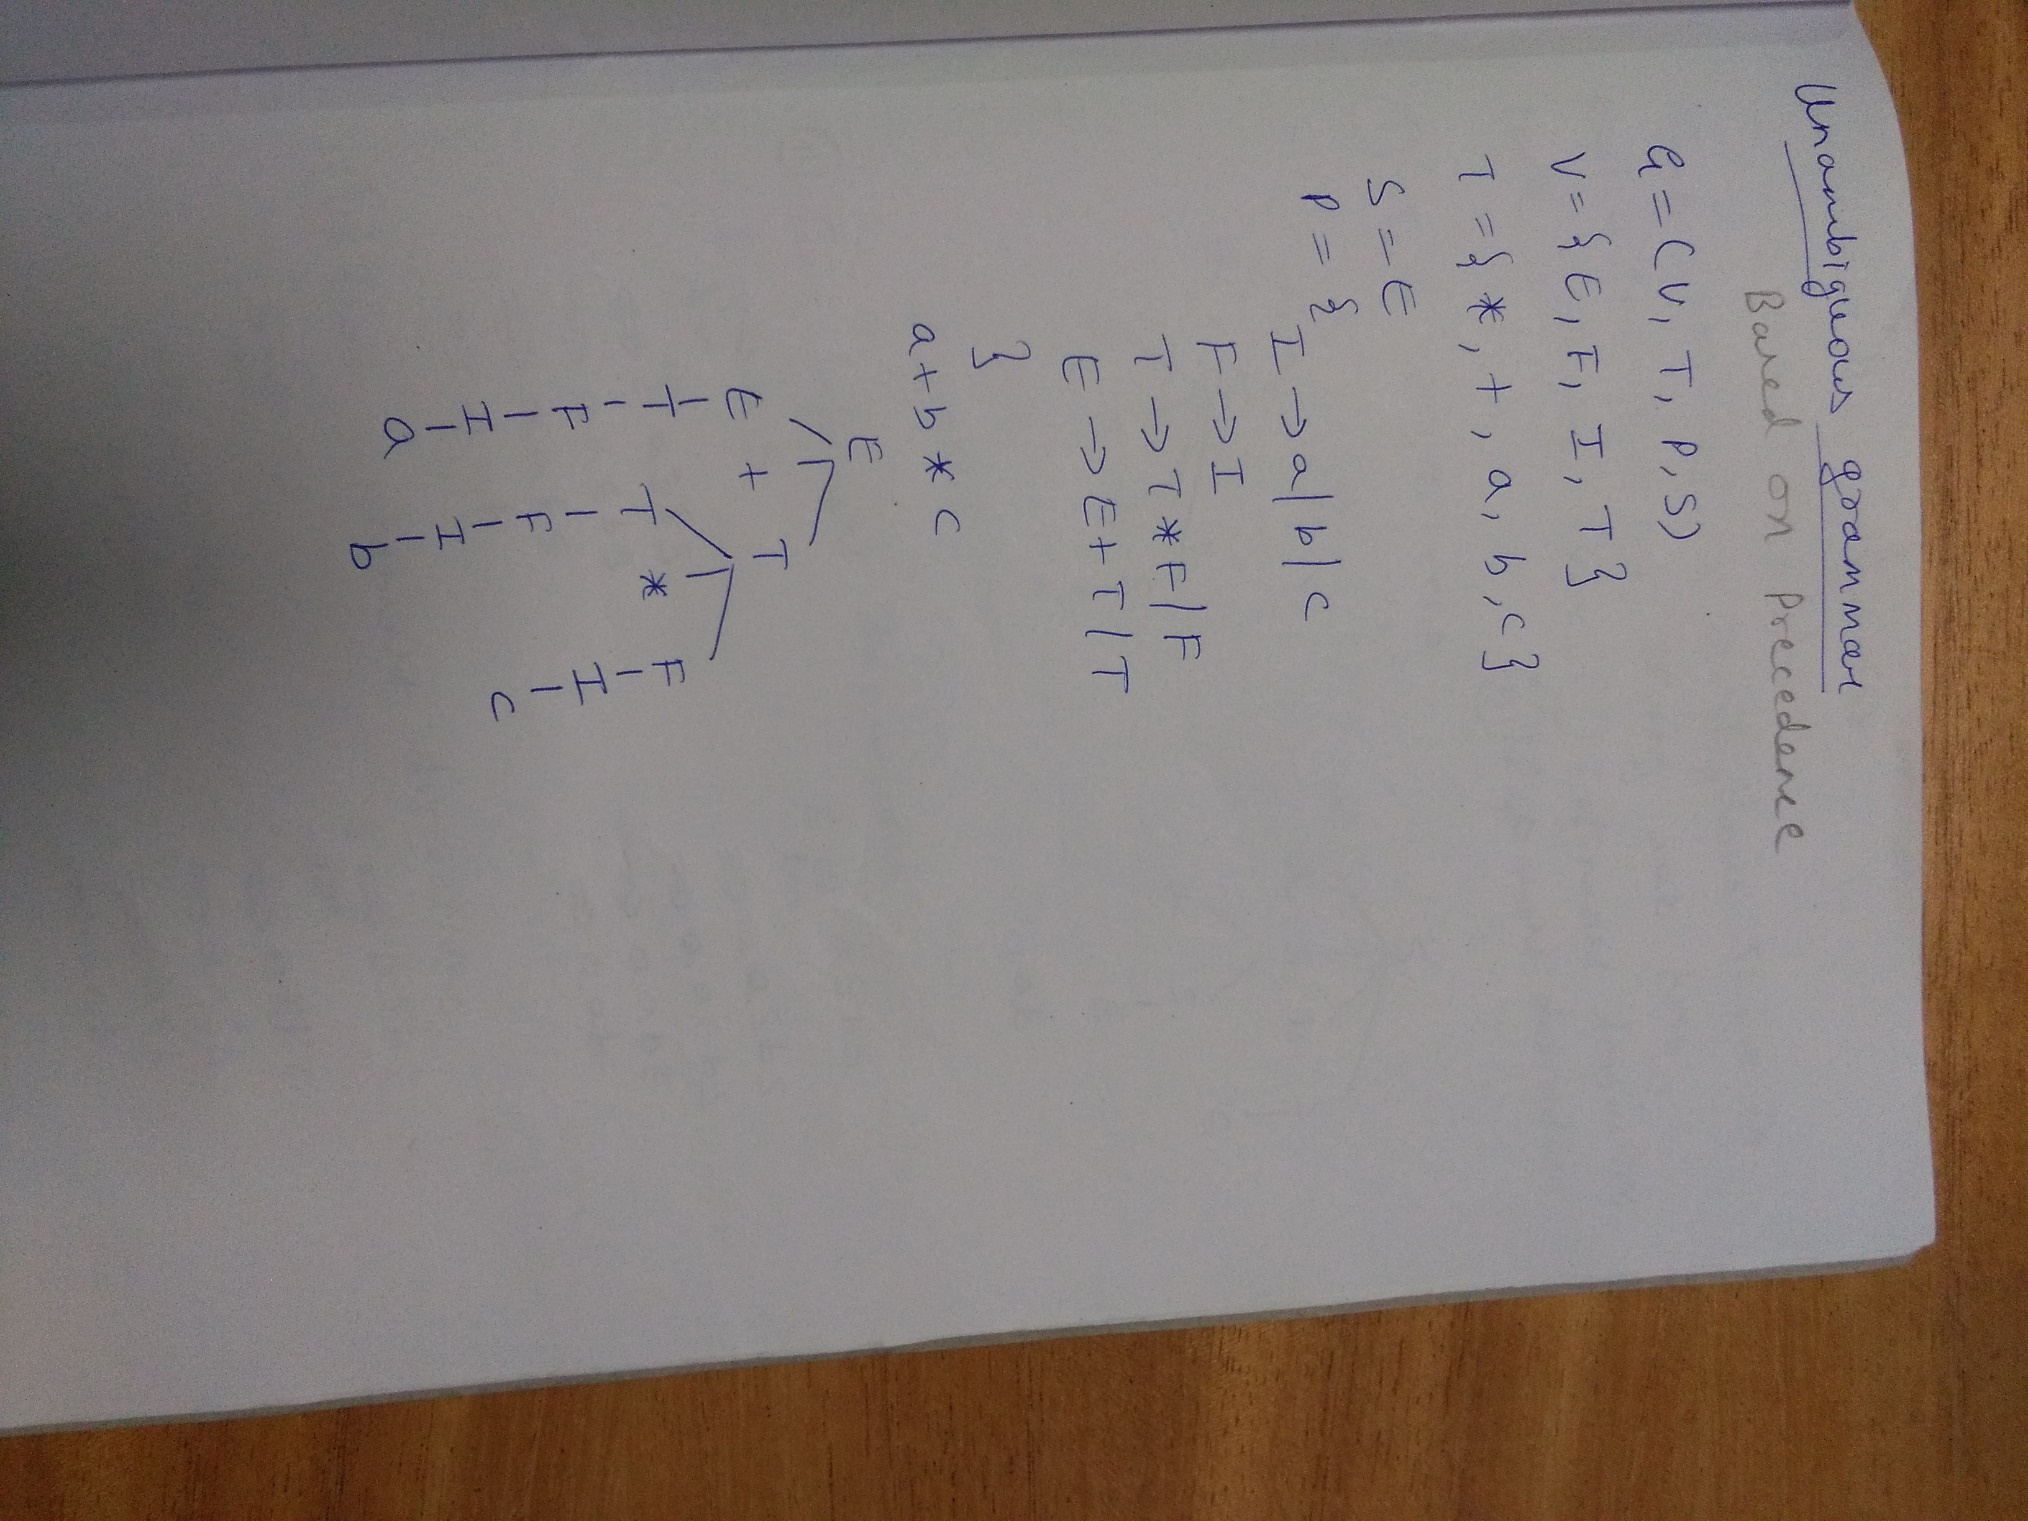 Unambiguous grammar
Based on Precedence
G = (V, T, P, S)
V = { E, F, I, T }
T = { *, +, a, b, c }
S = E
P = {
I → a | b | c
F → I
T → T * F | F
E → E + T | T
}
a + b * c
E
E + T
T T * F
F F I
I I c
a b